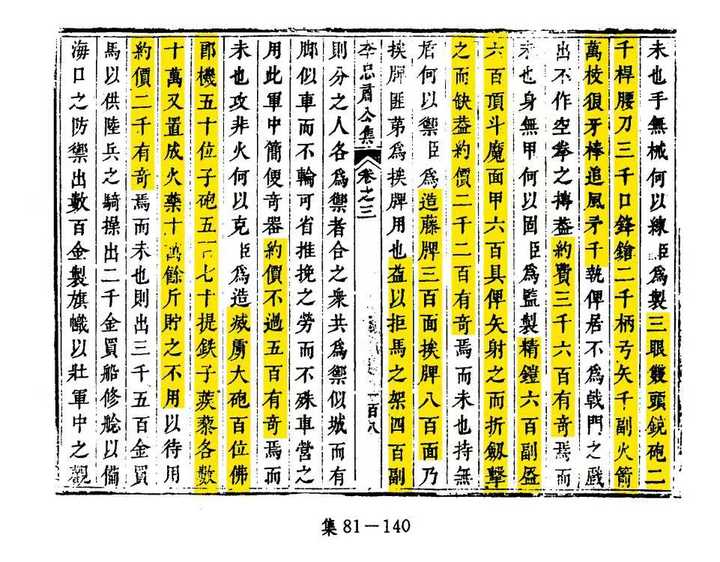 未也手無械何以練臣爲製三眼鏝頭銃砲二
千桿腰刀三千口鋒鎗二千柄弓矢千副火箭
萬枝狼牙棒追風矛千執俾居不爲戟門之戲
出不作空拳之搏葢約費三千六百有奇焉而
未也身無甲何以固臣爲監製精鎧六百副盔
六百頂斗魔面甲六百具俾矢射之而折劔擊
之而缺葢約價二千二百有奇焉而未也持無
盾何以禦臣爲造藤牌三百面挨牌八百面乃
挨牌匪苐爲挨牌用也益以拒馬之架四百副
李忠肅公集 卷之三 一百八
則分之人各爲禦者合之衆共爲禦似城而有
脚似車而不輪可省推挽之勞而不殊車營之
用此軍中簡便奇器約價不過五百有奇焉而
未也攻非火何以克臣爲造滅虜大砲百位佛
郎機五十位子砲五百七十提鉄子蒺藜各數
十萬又置成火藥十萬餘斤貯之不用以待用
約價二千有奇焉而未也則出三千五百金買
馬以供陸兵之騎操出二千金買船修艌以備
海口之防禦出數百金製旗幟以壯軍中之觀
集 81－140